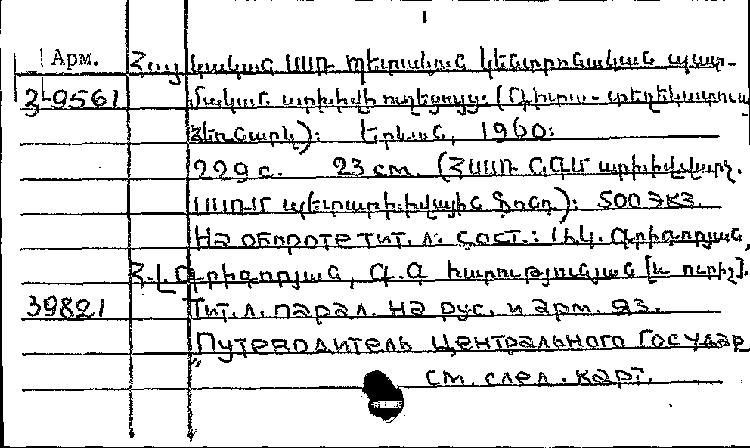 Арм. Հայկական ՍՍՌ Պետական կենտրոնական պատ-
3-9561 մական արխիվի ուղեցույց: (Գիտա-տեղեկատու
ձեռնարկ): Երևան, 1960:
229 с. 23 см. (ՀՍՍՌ ՆԳՄ արխիվ. վարչ.
ՍՍՌՄ պետարխիվային ֆոնդ.): 500 экз.
На обороте тит. л. сост.: Գրիգորյան,
Հ.Լ. Գրիգորյան, Գ.Ա. Հարությունյան [և ուրիշ].
39821 Тит. л. парал. на рус. и арм. яз.
Путеводитель Центрального Государ
см. след. карт.